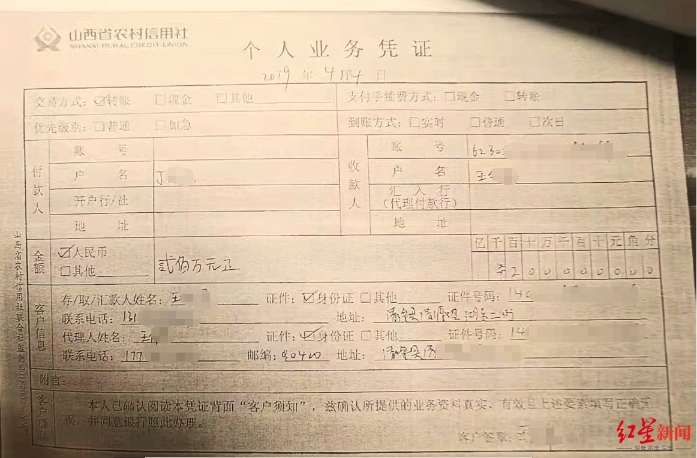 山西省农村信用社
SHANXI RURAL CREDIT UNION
个人业务凭证
2019年4月4日
交易方式: ☑转账 □现金 □其他 支付手续费方式: □现金 □转账
优先级别: □普通 □加急 到账方式: □实时 □普通 □次日
付款人 账号 收款人 账号 6230
户名 丁 户名 王
开户行/社 汇入行(代理付款行)
地址 地址
金额 ☑人民币 □其他 贰佰万元正 亿千百十万千百十元角分
¥200000000
客户信息 存/取/汇款人姓名: 王 证件: ☑身份证 □其他 证件号码: 14
联系电话: 131 地址:
代理人姓名: 王 证件: ☑身份证 □其他 证件号码: 14
联系电话: 177 邮编: 地址:
附言:
本人已确认阅读本凭证背面“客户须知”,兹确认所提供的业务资料真实、有效且上述要素填写正确无
误,并同意银行照此办理。
客户签章: 王
红星新闻